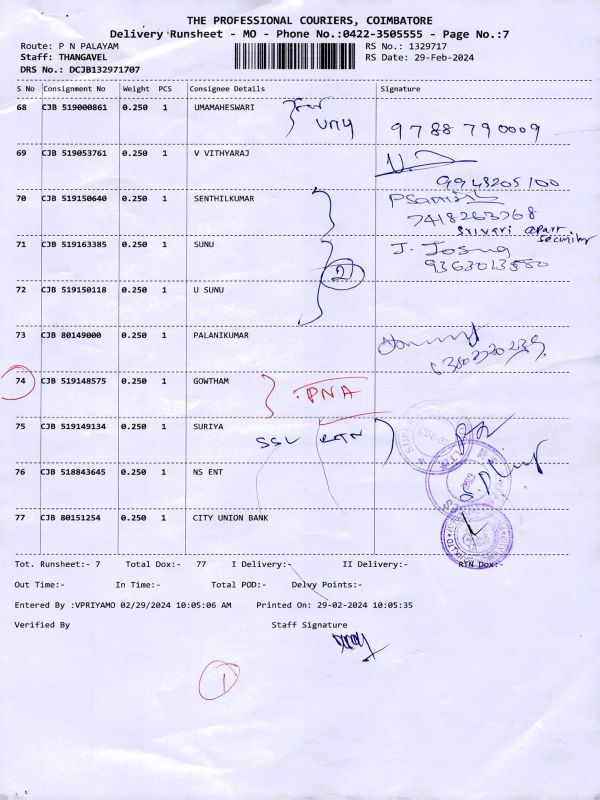 THE PROFESSIONAL COURIERS, COIMBATORE
Delivery Runsheet - MO - Phone No.:0422-3505555 - Page No.:7
Route: P N PALAYAM RS No.: 1329717
Staff: THANGAVEL RS Date: 29-Feb-2024
DRS No.: DCJB132971707
S No Consignment No Weight PCS Consignee Details Signature
68 CJB 519000861 0.250 1 UMAMAHESWARI
9788790009
69 CJB 519053761 0.250 1 V VITHYARAJ
9943205100
70 CJB 519150640 0.250 1 SENTHILKUMAR
7418263768
Srivari apart.
security
71 CJB 519163385 0.250 1 SUNU J. Josna
9363013580
2
72 CJB 519150118 0.250 1 U SUNU
73 CJB 80149000 0.250 1 PALANIKUMAR
74 CJB 519148575 0.250 1 GOWTHAM PNA
75 CJB 519149134 0.250 1 SURIYA
76 CJB 518843645 0.250 1 NS ENT
77 CJB 80151254 0.250 1 CITY UNION BANK
Tot. Runsheet:- 7 Total Dox:- 77 I Delivery:- II Delivery:- RTN Dox:-
Out Time:- In Time:- Total POD:- Delvy Points:-
Entered By :VPRIYAMO 02/29/2024 10:05:06 AM Printed On: 29-02-2024 10:05:35
Verified By Staff Signature
1